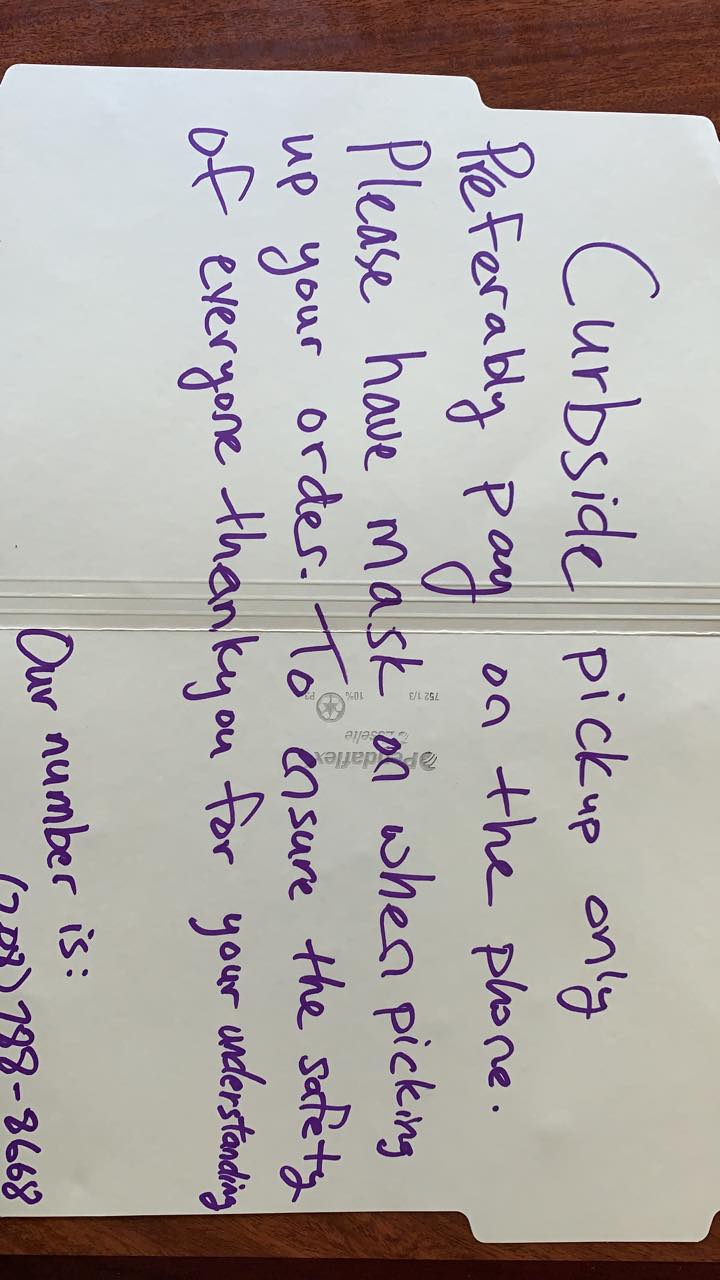 Curbside pickup only
Preferably pay on the phone.
Please have mask on when picking
up your order. To ensure the safety
of everyone thankyou for your understanding
Our number is:
788-8668
752 1/3
10%
Pendaflex
Esselte